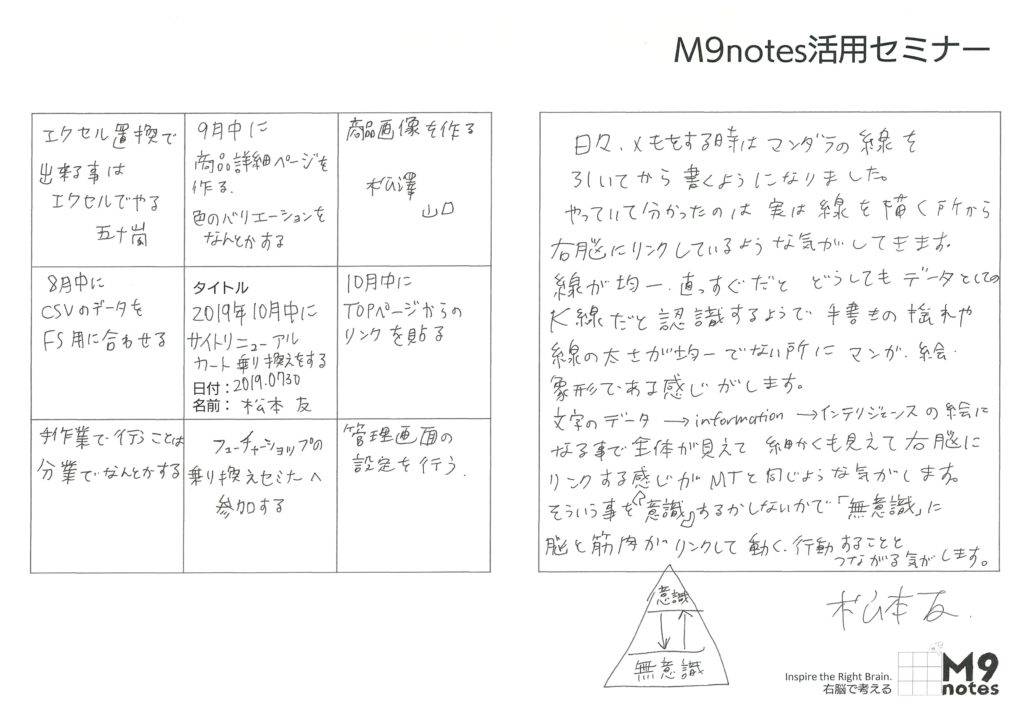 M9notes活用セミナー
エクセル置換で
出来る事は
エクセルでやる
五十嵐
9月中に
商品詳細ページを
作る.
色のバリエーションを
なんとかする
商品画像を作る
松澤
山口
8月中に
CSVのデータを
FS用に合わせる
タイトル
2019年10月中に
サイトリニューアル
カート乗り換えをする
日付:2019.0730
名前: 松本 友
10月中に
TOPページからの
リンクを貼る
手作業で行うことは
分業でなんとかする
フューチャーショップの
乗り換えセミナーへ
参加する
管理画面の
設定を行う.
日々、メモをする時はマンダラの線を
引いてから書くようになりました。
やっていて分かったのは実は線を描く所から
右脳にリンクしているような気がしてきます。
線が均一、直っすぐだと どうしてもデータとしての
線だと認識するようで手書きの揺れや
線の太さが均一でない所にマンガ、絵、
象形である感じがします。
文字のデータ→information→インテリジェンスの絵に
なる事で全体が見えて細かくも見えて右脳に
リンクする感じがMTと同じような気がします。
そういう事を「意識」するかしないかで「無意識」に
脳と筋肉がリンクして動く、行動することと
つながる気がします。
意識
無意識
松本友.
Inspire the Right Brain.
右脳で考える
M9
notes